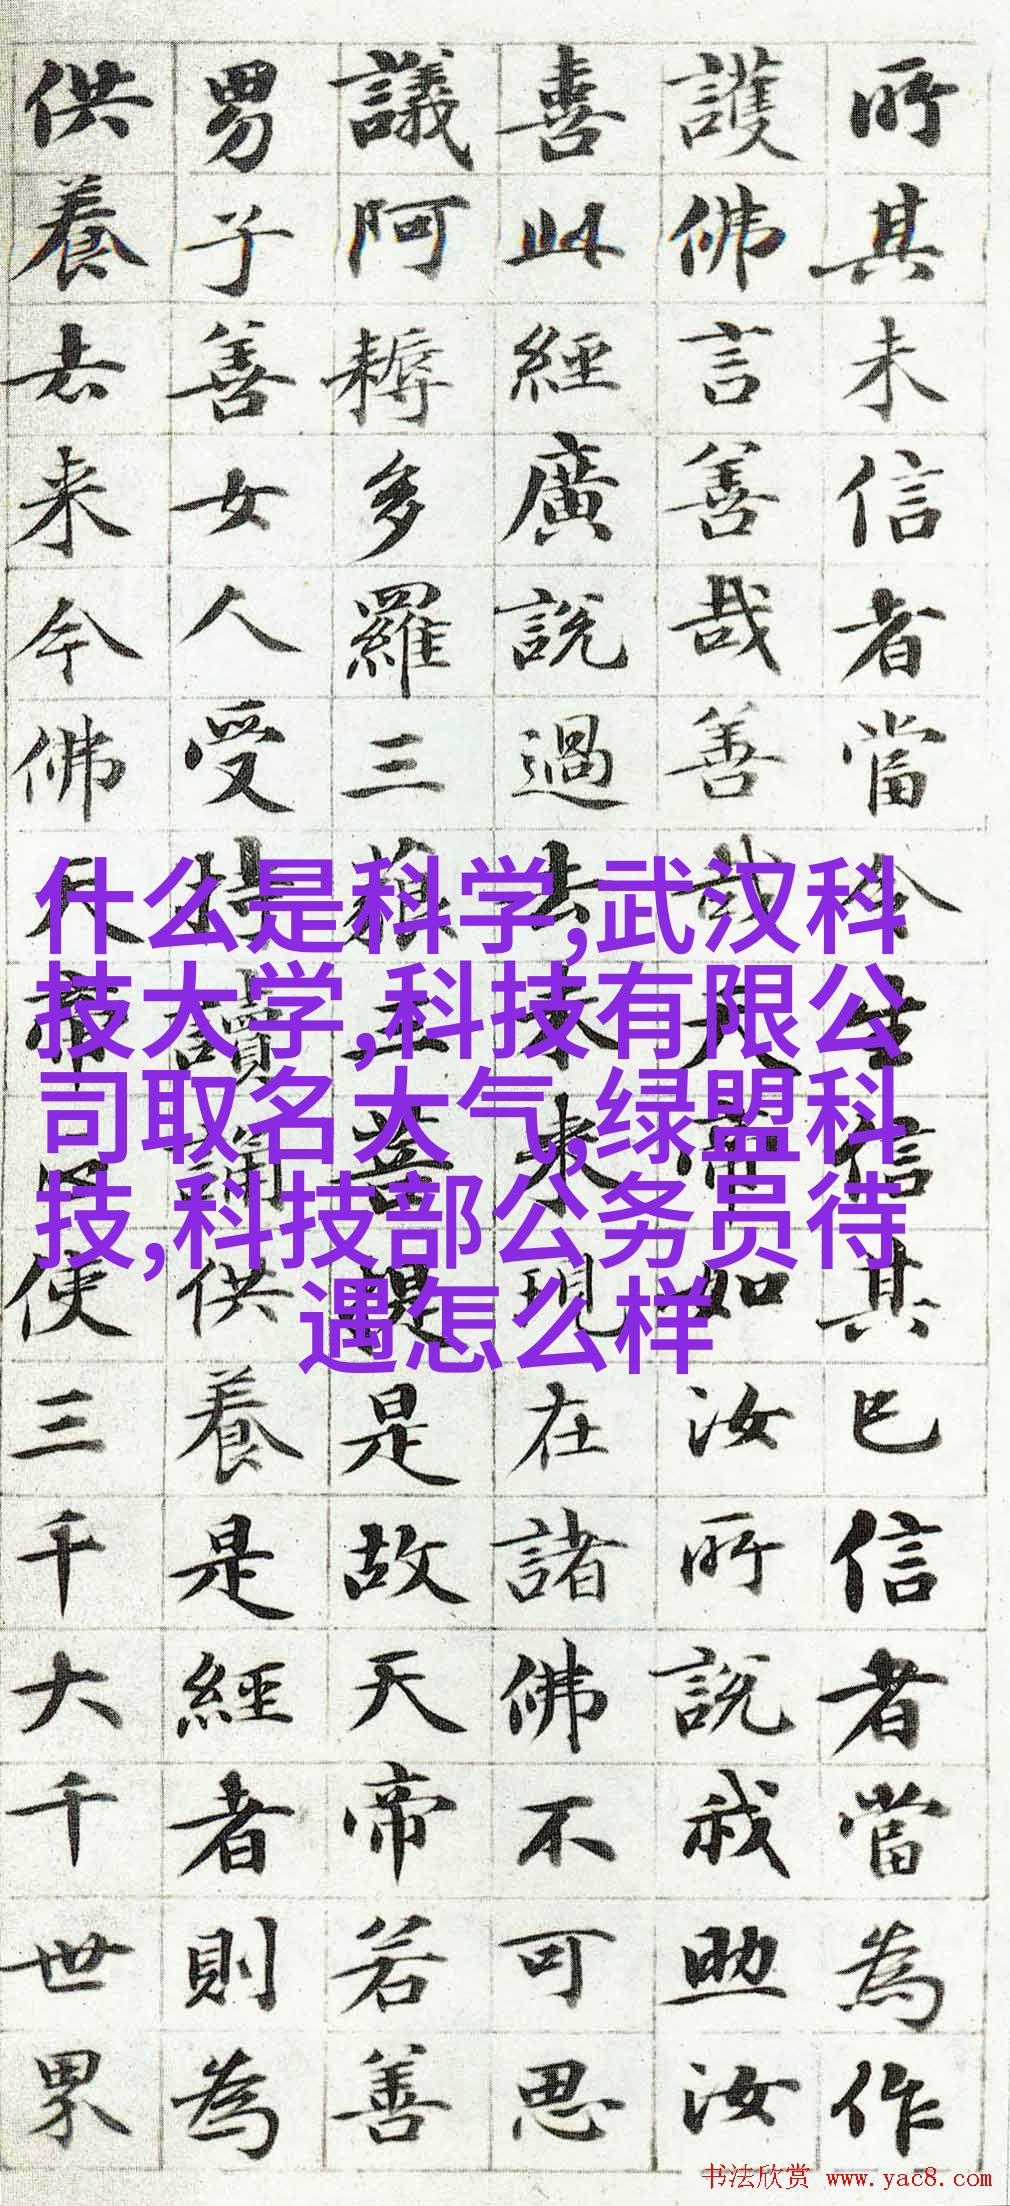 所其未信者當令生信其已信者當為作
護佛言善哉善哉天帝如汝所說我助汝
喜此經廣說過去未来現在諸佛不可思
議阿耨多羅三藐三菩提是故天帝若善
男子善女人受持讀誦供養是經者則為
供養去来今佛天帝使三千大千世界
什么是科学,武汉科
技大学,科技有限公
司取名大气,绿盟科
技,科技部公务员待
遇怎么样
书法欣赏 www.yac8.com